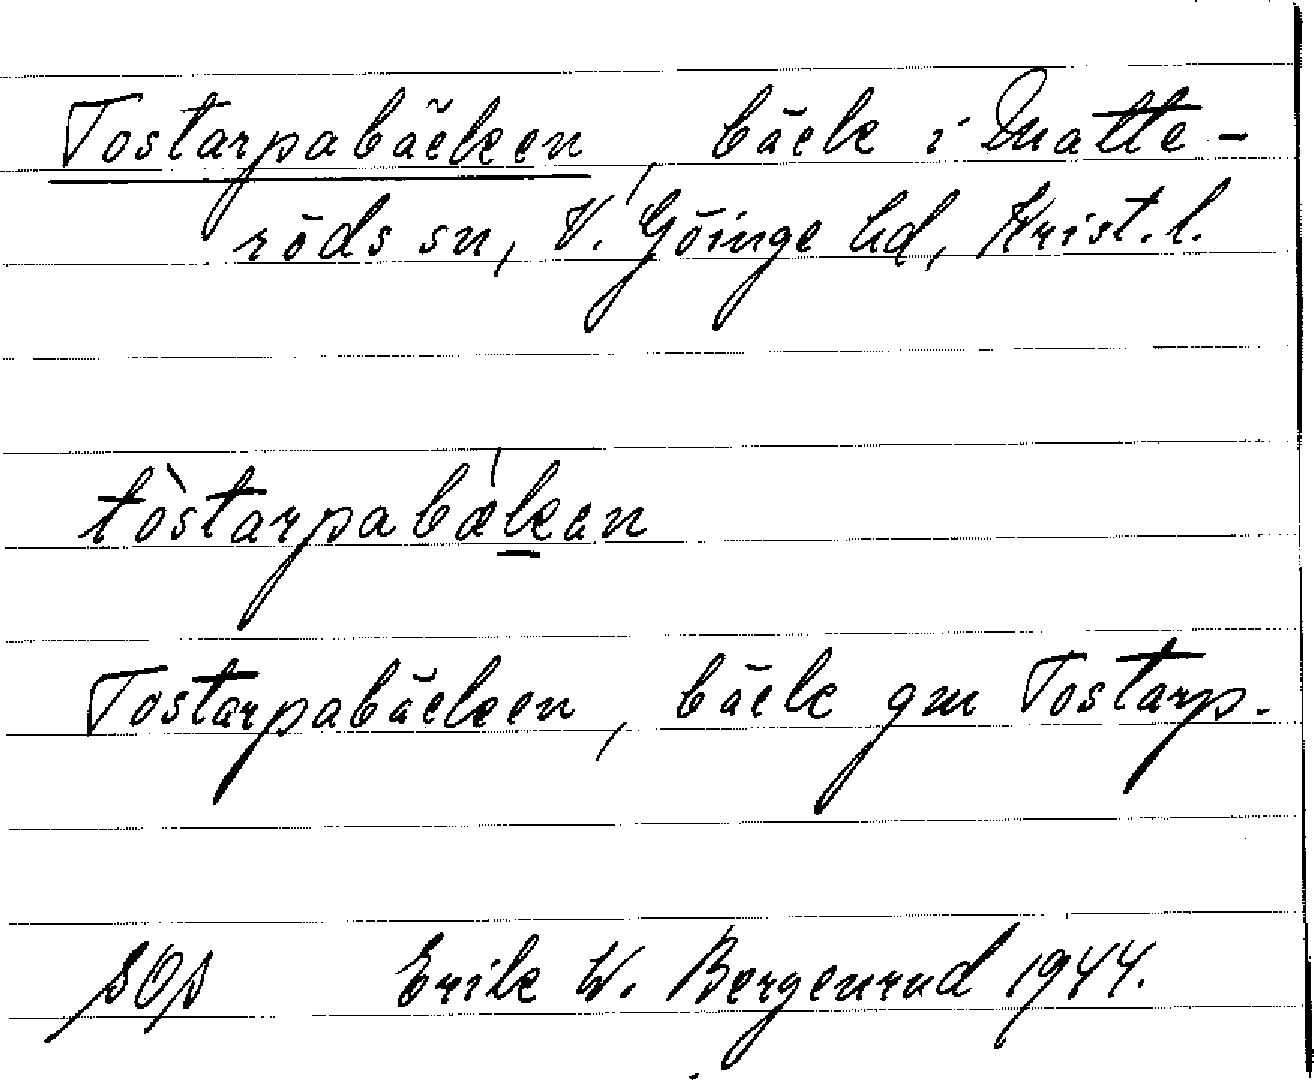 Tostarpabäcken, bäck i Matte-
röds sn, V. Göinge hd, Krist. l.
tòstarpabǽḵan
Tostarpabäcken, bäck gm Tostarp.
SOS Erik W. Bergenrud 1944.